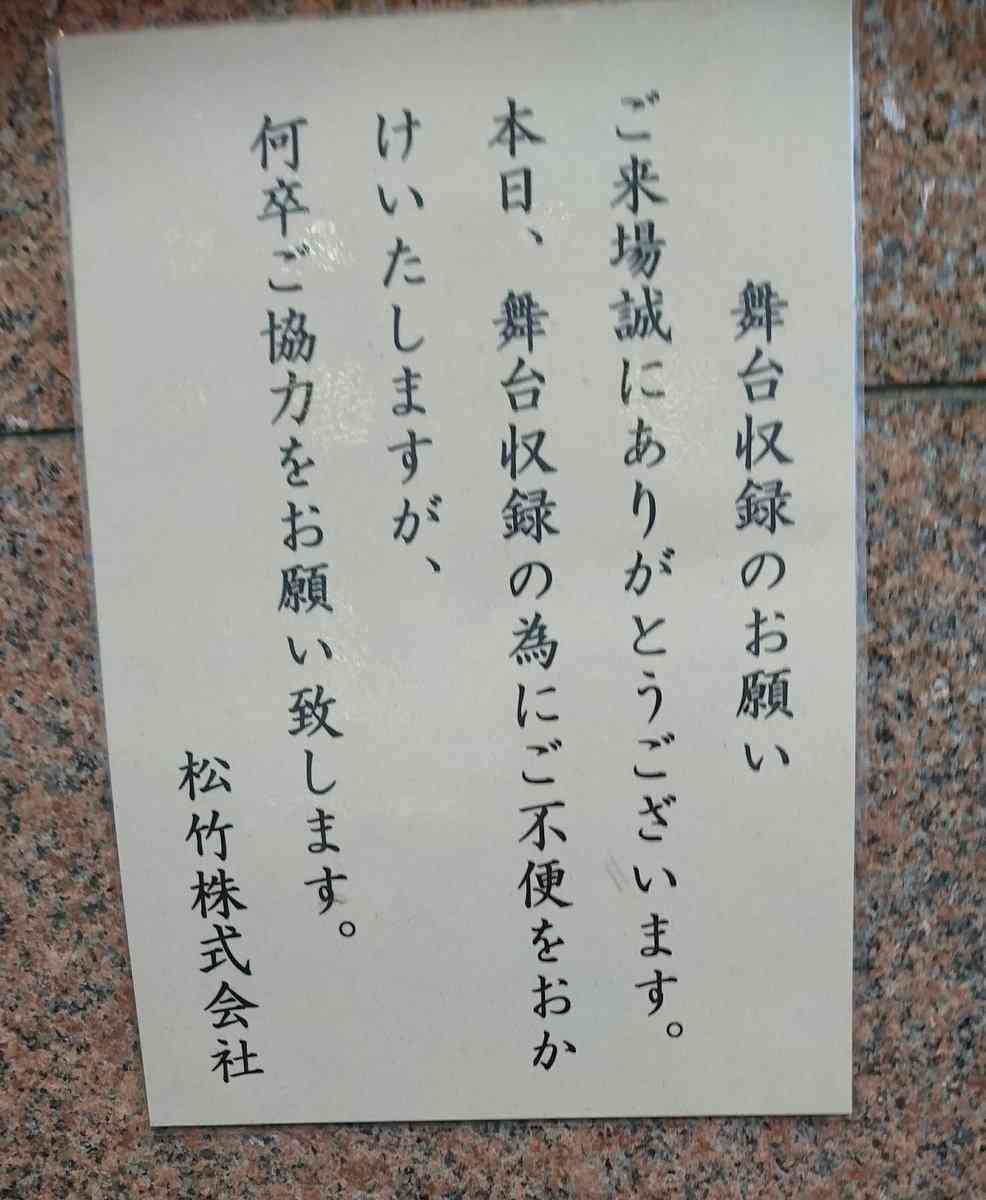 舞台収録のお願い
ご来場誠にありがとうございます。
本日、舞台収録の為にご不便をおか
けいたしますが、
何卒ご協力をお願い致します。
松竹株式会社